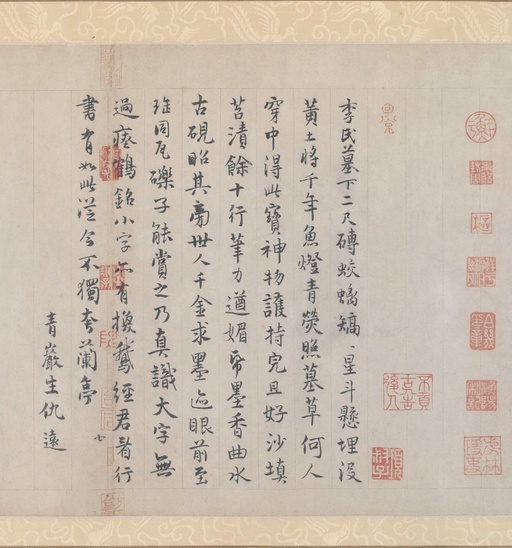 李氏墓下二尺磚蛟螭矯〻星斗懸埋沒
黃土將千年魚燈青熒照墓草何人
穿中得此寶神物護持完且好沙填
苔漬餘十行筆力遒媚帋墨香曲水
古硯昭其旁世人千金求墨迹眼前至
珤同瓦礫子能賞之乃真識大字無
過瘞鶴銘小字亦有換鵞經君看行
書有如此從今不獨夸蘭亭
青巖生仇遠